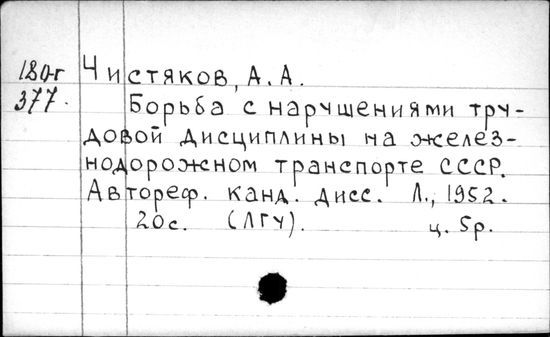 180-г Чистяков, А. А.
377. Борьба с нарушениями тру-
довой дисциплины на желез-
нодорожном транспорте СССР.
Автореф. канд. дисс. Л., 1952.
20с. (ЛГУ). ц. 5р.